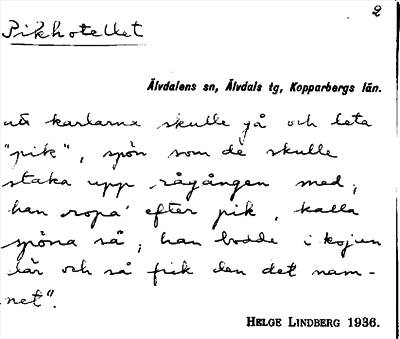 2
Pikhotellet
Älvdalens sn, Älvdals tg, Kopparbergs län.
nä karlarna skulle gå och leta
"pik", spön som de skulle
staka upp rågången med,
han ropa' efter pik, kalla
spöna så, han bodde i kojun
där och så fick den det nam-
net".
HELGE LINDBERG 1936.